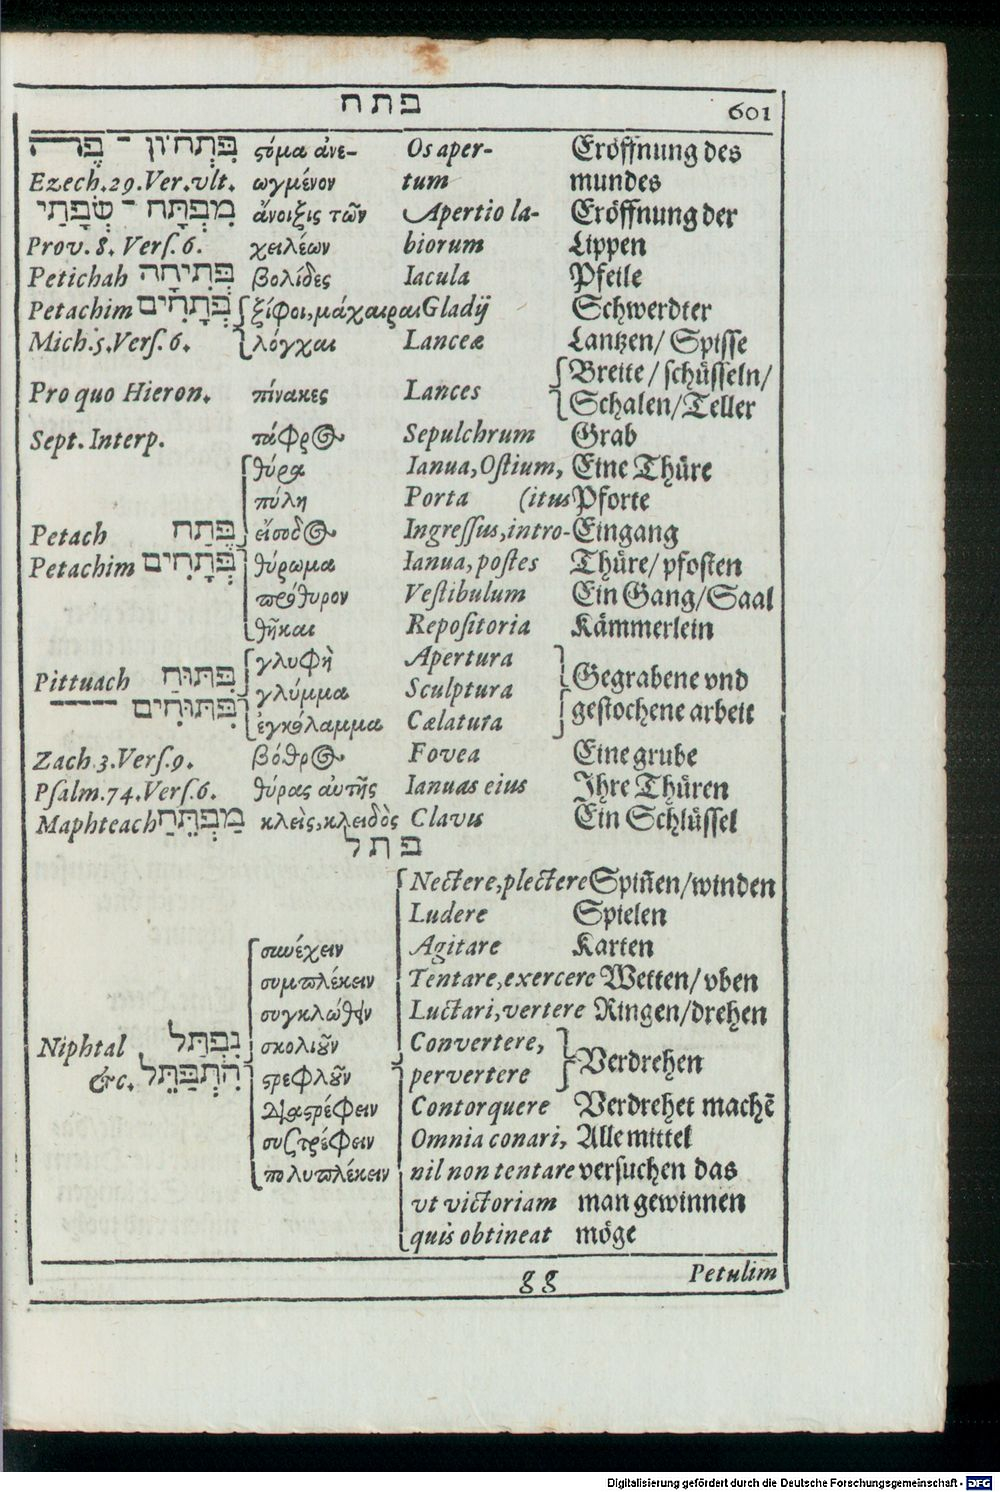 פתח 601
פִּתְחוֹן־פֶּה ςόμα ἀνε- Os aper- Eröffnung des
Ezech. 29. Ver. vlt. ωγμένον tum mundes
מִפְתַּח־שְׂפָתַי ἄνοιξις τῶν Apertio la- Eröffnung der
Prov. 8. Verſ. 6. χειλέων biorum Lippen
Petichah פְּתִיחָה βολίδες Iacula Pfeile
Petachim פְּתָחִים ξίφοι, μάχαιραι Gladij Schwerdter
Mich. 5. Verſ. 6. λόγχαι Lanceæ Lantzen/ Spiſſe
Breite/ ſchüſſeln/
Pro quo Hieron. πίνακες Lances
Schalen/ Teller
Sept. Interp. τάφρος Sepulchrum Grab
θύρα Ianua, Oſtium, Eine Thüre
πύλη Porta (itus Pforte
Petach פֶּתַח εἴσοδος Ingreſſus, intro- Eingang
Petachim פְּתָחִים θύρωμα Ianua, poſtes Thüre/ pfoſten
πρόθυρον Veſtibulum Ein Gang/ Saal
θῆκαι Repoſitoria Kämmerlein
γλυφὴ Apertura
Pittuach פִּתּוּחַ γλύμμα Sculptura Gegrabene vnd
---- פִּתּוּחִים ἐγκόλαμμα Cælatura geſtochene arbeit
Zach. 3. Verſ. 9. βόθρος Fovea Eine grube
Pſalm. 74. Verſ. 6. θύρας αὐτῆς Ianuas eius Ihre Thüren
Maphteach מַפְתֵּחַ κλεὶς, κλειδὸς Clavis Ein Schlüſſel
פתל
Nectere, plectere Spiñen/ winden
Ludere Spielen
συνέχειν Agitare Karten
συμπλέκειν Tentare, exercere Wetten/ vben
συγκλώθειν Luctari, vertere Ringen/ drehen
Niphtal נִפְתַּל σκολιοῦν Convertere,
Verdrehen
&c. הִתְפַּתֵּל ςρεφλοῦν pervertere
διαςρέφειν Contorquere Verdrehet machē
συςτρέφειν Omnia conari, Alle mittel
πολυπλέκειν nil non tentare verſuchen das
vt victoriam man gewinnen
quis obtineat möge
gg Petulim
Digitalisierung gefördert durch die Deutsche Forschungsgemeinschaft - DFG